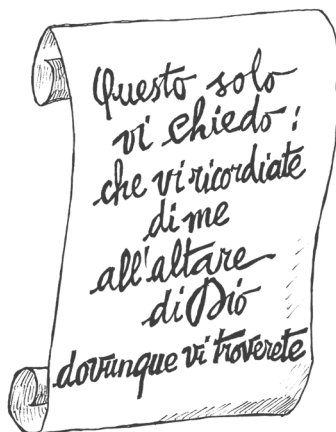 Questo solo
vi chiedo:
che vi ricordiate
di me
all'altare
di Dio
dovunque vi troverete